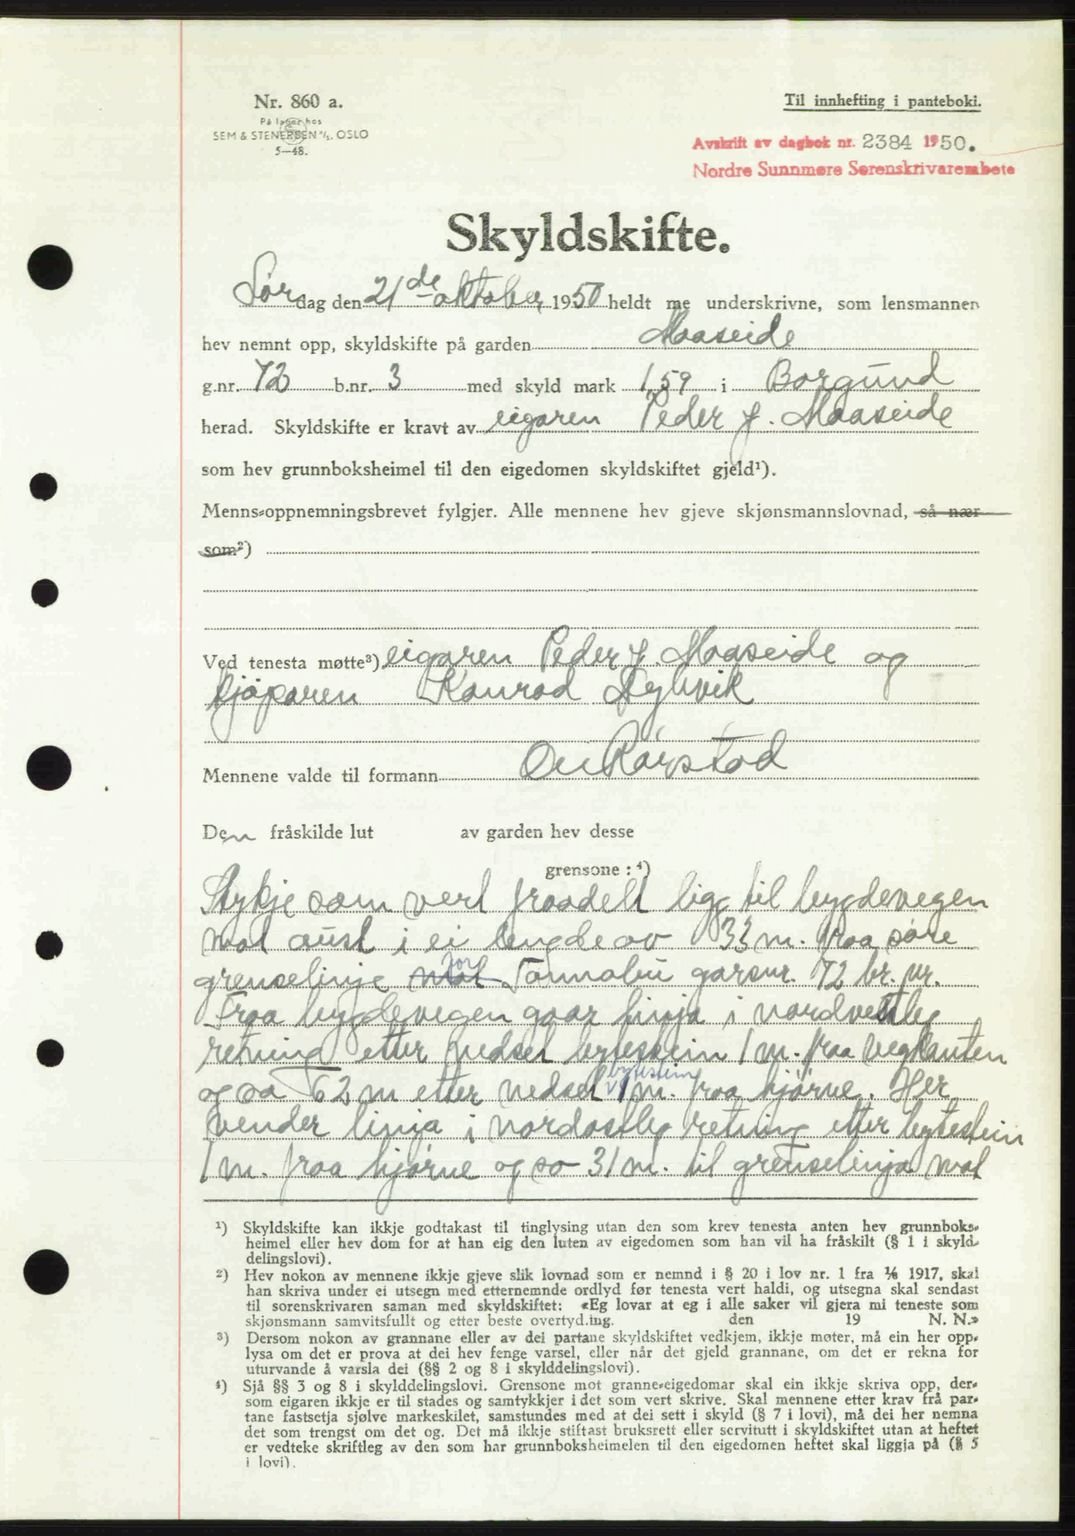 Nr. 860 a.
På lager hos
SEM & STENERSEN A/S. OSLO
5—48.
Til innhefting i panteboki.
Avskrift av dagbok nr. 2384 1950.
Nordre Sunnmøre Sorenskrivarembete
Skyldskifte.
Lørdag den 21de oktober 1950 heldt me underskrivne, som lensmannen
hev nemnt opp, skyldskifte på garden Maaseide
g.nr. 72 b.nr. 3 med skyld mark 1,59 i Borgund
herad. Skyldskifte er kravt av eigaren Peder J. Maaseide
som hev grunnboksheimel til den eigedomen skyldskiftet gjeld¹).
Menns-oppnemningsbrevet fylgjer. Alle mennene hev gjeve skjønsmannslovnad, så nær
som²)
Ved tenesta møtte³) eigaren Peder J. Maaseide og
kjøparen Konrad
Mennene valde til formann
Den fråskilde lut av garden hev desse
grensone : ⁴)
Stykje som vert fraadelt ligg til bygdevegen
mot aust i ei lengde av 33 m. fraa søre
grenselinje mot for garsnr. 72 br. nr.
Fraa bygdevegen gaar linja i nordvestleg
retning etter nedset bytestein 1 m. fraa vegkanten
og so 62 m etter nedset bytestein 1 m. fraa hjørne. Her
vender linja i nordostleg retning etter bytestein
1 m. fraa hjørne og so 31 m. til grenselinja mot
¹) Skyldskifte kan ikkje godtakast til tinglysing utan den som krev tenesta anten hev grunnboks-
heimel eller hev dom for at han eig den luten av eigedomen som han vil ha fråskilt (§ 1 i skyld-
delingslovi).
²) Hev nokon av mennene ikkje gjeve slik lovnad som er nemnd i § 20 i lov nr. 1 fra 1/6 1917, skal
han skriva under ei utsegn med etternemnde ordlyd før tenesta vert haldi, og utsegna skal sendast
til sorenskrivaren saman med skyldskiftet: «Eg lovar at eg i alle saker vil gjera mi teneste som
skjønsmann samvitsfullt og etter beste overtyding. den 19 N. N.»
³) Dersom nokon av grannane eller av dei partane skyldskiftet vedkjem, ikkje møter, må ein her opp-
lysa om det er prova at dei hev fenge varsel, eller når det gjeld grannane, om det er rekna for
uturvande å varsla dei (§§ 2 og 8 i skylddelingslovi).
⁴) Sjå §§ 3 og 8 i skylddelingslovi. Grensone mot granne-eigedomar skal ein ikkje skriva opp, der-
som eigaren ikkje er til stades og samtykkjer i det som vert skrive. Skal mennene etter krav frå par-
tane fastsetja sjølve markeskilet, samstundes med at dei sett i skyld (§ 7 i lovi), må dei her nemna
det som trengst om det og. Det må ikkje stiftast bruksrett eller servitutt i skyldskiftet utan at heftet
er vedteke skriftleg av den som har grunnboksheimelen til den eigedomen heftet skal liggja på (§ 5
i lovi).